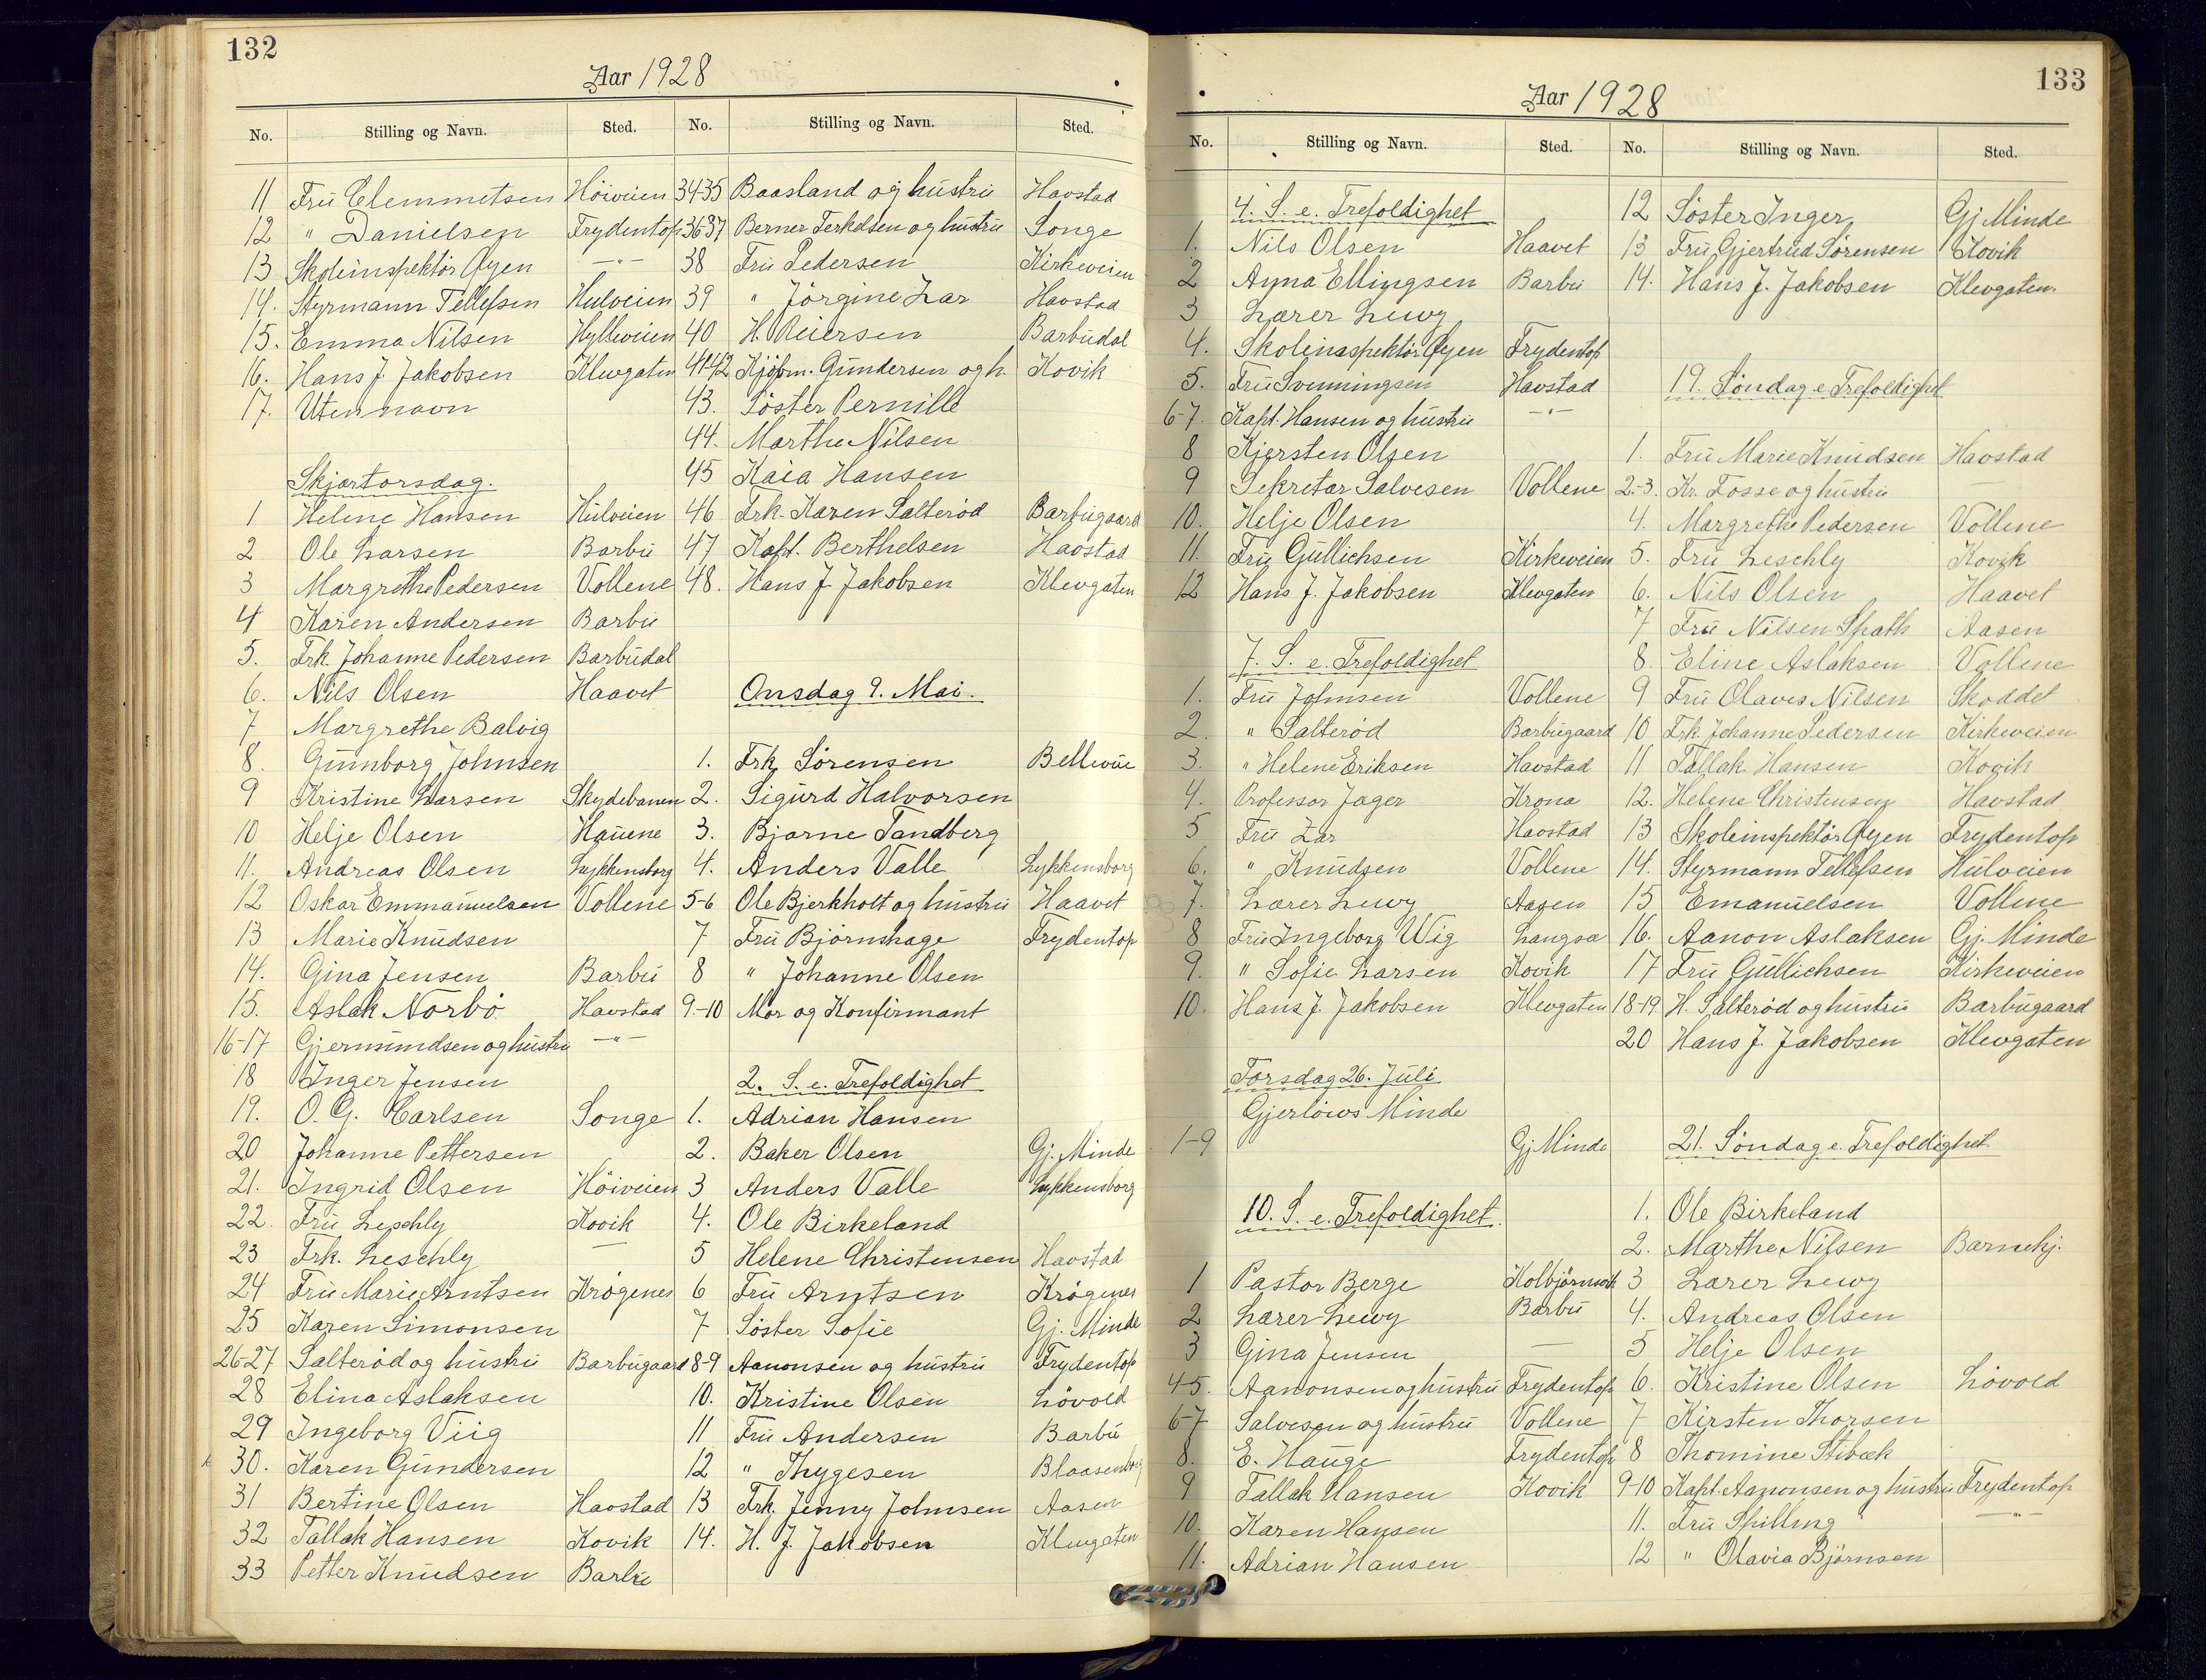 132
Aar 1928
No. Stilling og Navn. Sted.
11 Fru Clemmetsen Höiveien
12 " Danielsen Frydentop
13 Skoleinspektör Øyen —"—
14. Styrmann Tellefsen Hulveien
15. Emma Nilsen Hylleveien
16. Hans J. Jakobsen Klevgaten
17. Uten navn
Skjærtorsdag.
1 Helene Hansen Hulveien
2 Ole Larsen Barbu
3 Margrethe Pedersen Vollene
4 Karen Andersen Barbu
5. Frk. Johanne Pedersen Barbudal
6. Nils Olsen Haavet
7 Margrethe Balvig
8. Gunnborg Johnsen
9 Kristine Larsen Skydebanen
10 Helje Olsen Hauene
11. Andreas Olsen Lykkensborg
12 Oskar Emmanuelsen Vollene
13 Marie Knudsen
14. Gina Jensen Barbu
15. Aslak Norbö Havstad
16-17 Gjermundsen og hustru —"—
18 Inger Jensen
19. O. G. Carlsen Songe
20 Johanne Pettersen
21. Ingrid Olsen Höiveien
22. Fru Leschly Kovik
23 Frk. Leschly —
24 Fru Marie Arntsen Krögenes
25 Karen Simonsen
26-27 Salteröd og hustru Barbugaard
28 Elina Aslaksen
29 Ingeborg Viig
30. Karen Gundersen
31 Bertine Olsen Havstad
32 Tallak Hansen Kovik
33 Petter Knudsen Barbu
No. Stilling og Navn. Sted.
34-35 Baasland og hustru Havstad
36-37 Berner Terkelsen og hustru Songe
38 Fru Pedersen Kirkeveien
39 " Jörgine Zar Havstad
40 H. Reiersen Barbudal
41-42 Kjöbm. Gundersen og h. Kovik
43. Söster Pernille
44. Marthe Nilsen
45 Kaia Hansen
46 Frk. Karen Salteröd Barbugaard
47 Kapt. Berthelsen Havstad
48. Hans J. Jakobsen Klevgaten
Onsdag 9. Mai.
1. Frk. Sörensen Bellevue
2. Sigurd Halvorsen
3. Bjarne Tandberg
4. Anders Valle Lykkensborg
5-6 Ole Bjerkholt og hustru Haavet
7 Fru Björnshage Frydentop
8 " Johanne Olsen
9.-10 Mor og Konfirmant
2. S. e. Trefoldighet
1. Adrian Hansen
2. Baker Olsen Gj. Minde
3 Anders Valle Lykkensborg
4. Ole Birkeland
5 Helene Christensen Havstad
6 Fru Arntsen Krögenes
7 Söster Sofie Gj. Minde
8-9 Aanonsen og hustru Frydentop
10. Kristine Olsen Lövold
11 Fru Andersen Barbu
12 " Thygesen Blaasenborg
13 Frk. Jenny Johnsen Aasen
14. H. J. Jakobsen Klevgaten
133
Aar 1928
No. Stilling og Navn. Sted.
4. S. e. Trefoldighet
1. Nils Olsen Haavet
2 Anna Ellingsen Barbu
3 Lærer Lewy
4. Skoleinspektör Øyen Frydentop
5. Fru Svenningsen Havstad
6-7 Kapt. Hansen og hustru —"—
8 Kjersten Olsen
9 Sekretær Salvesen Vollene
10. Helje Olsen
11. Fru Gullichsen Kirkeveien
12 Hans J. Jakobsen Klevgaten
7. S. e. Trefoldighet
1. Fru Johnsen Vollene
2. " Salteröd Barbugaard
3. " Helene Eriksen Havstad
4. Professor Jager Krona
5 Fru Zar Havstad
6. " Knudsen Vollene
7. Lærer Lewy Aasen
8 Fru Ingeborg Wig Langsæ
9. " Sofie Larsen Kovik
10. Hans J. Jakobsen Klevgaten
Torsdag 26. Juli
Gjerlöws Minde
1-9 Gj Minde
10. S. e. Trefoldighet.
1 Pastor Berge
2 Lærer Lewy Barbu
3 Gina Jensen —
4-5. Aanonsen og hustru Frydentop
6-7 Salvesen og hustru Vollene
8. E. Hauge Frydentop
9 Tallak Hansen Kovik
10. Karen Hansen
11. Adrian Hansen
No. Stilling og Navn. Sted.
12 Söster Inger Gj Minde
13 Fru Gjertrud Sörensen Kovik
14. Hans J. Jakobsen Klevgaten.
19. Söndag e. Trefoldighet
1. Fru Marie Knudsen Havstad
2.-3. Kr. Fosse og hustru
4. Margrethe Pedersen Vollene
5. Fru Leschly Kovik
6. Nils Olsen Haavet
7 Fru Nilsen Spath Aasen
8. Eline Aslaksen Vollene
9 Fru Olaves Nilsen Skoddet
10 Frk. Johanne Pedersen Kirkeveien
11 Tallak Hansen Kovik
12. Helene Christensen Havstad
13 Skoleinspektör Øyen Frydentop
14. Styrmann Tellefsen Hulveien
15 Emanuelsen Vollene
16. Aanon Aslaksen Gj. Minde
17 Fru Gullichsen Kirkeveien
18-19. H. Salteröd og hustru Barbugaard
20 Hans J. Jakobsen Klevgaten
21. Söndag e. Trefoldighet
1. Ole Birkeland
2. Marthe Nilsen Barnehj.
3 Lærer Lewy
4. Andreas Olsen
5 Helje Olsen
6. Kristine Olsen Lövold
7 Kirsten Thorsen
8 Thomine Stibæk
9-10 Kapt. Aanonsen og hustru Frydentop
11. Fru Spilling —"—
12 " Olavia Björnsen